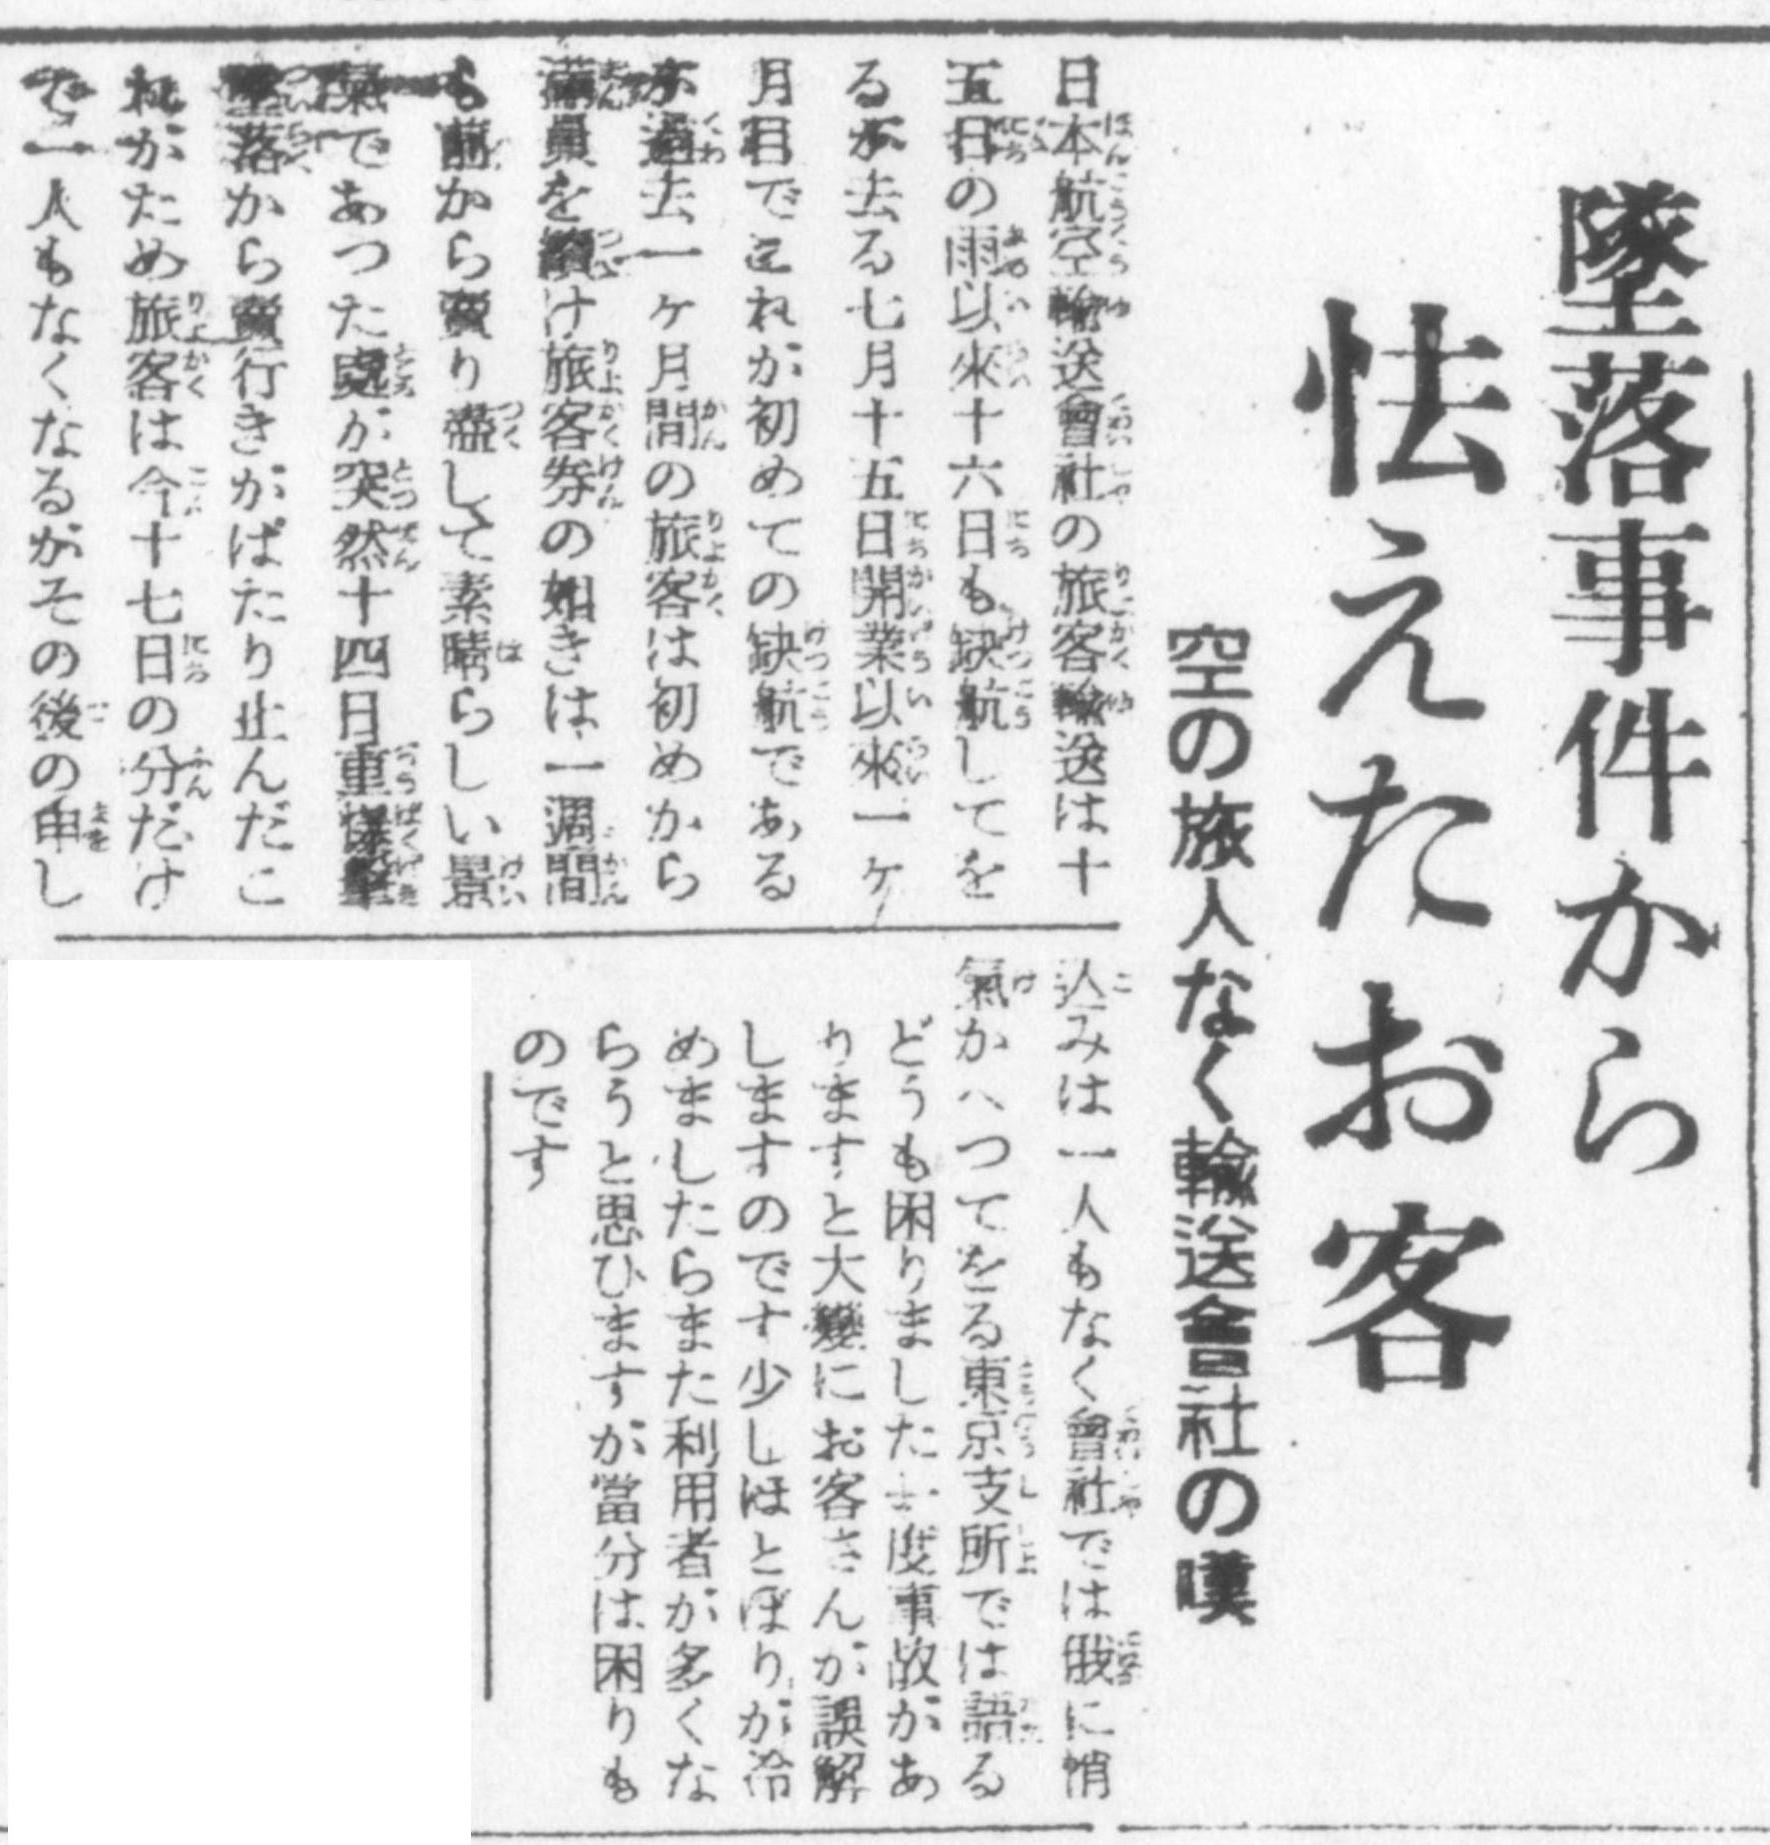 墜落事件から
怯えたお客
空の旅人なく輸送會社の嘆
日本航空輸送會社の旅客輸送は十
五日の雨以來十六日も缺航してを
るが去る七月十五日開業以來一ヶ
月目でこれが初めての缺航である
が過去一ヶ月間の旅客は初めから
滿員を續け旅客券の如きは一週間
も前から賣り盡して素晴らしい景
氣であつた處が突然十四日重爆撃
墜落から賣行きがぱたり止んだこ
れがため旅客は今十七日の分だけ
で一人もなくなるがその後の申し
込みは一人もなく會社では俄に悄
氣かへつてをる東京支所では語る
どうも困りました一度事故があ
りますと大變にお客さんが誤解
しますのです少しほとぼりが冷
めましたらまた利用者が多くな
らうと思ひますが當分は困りも
のです